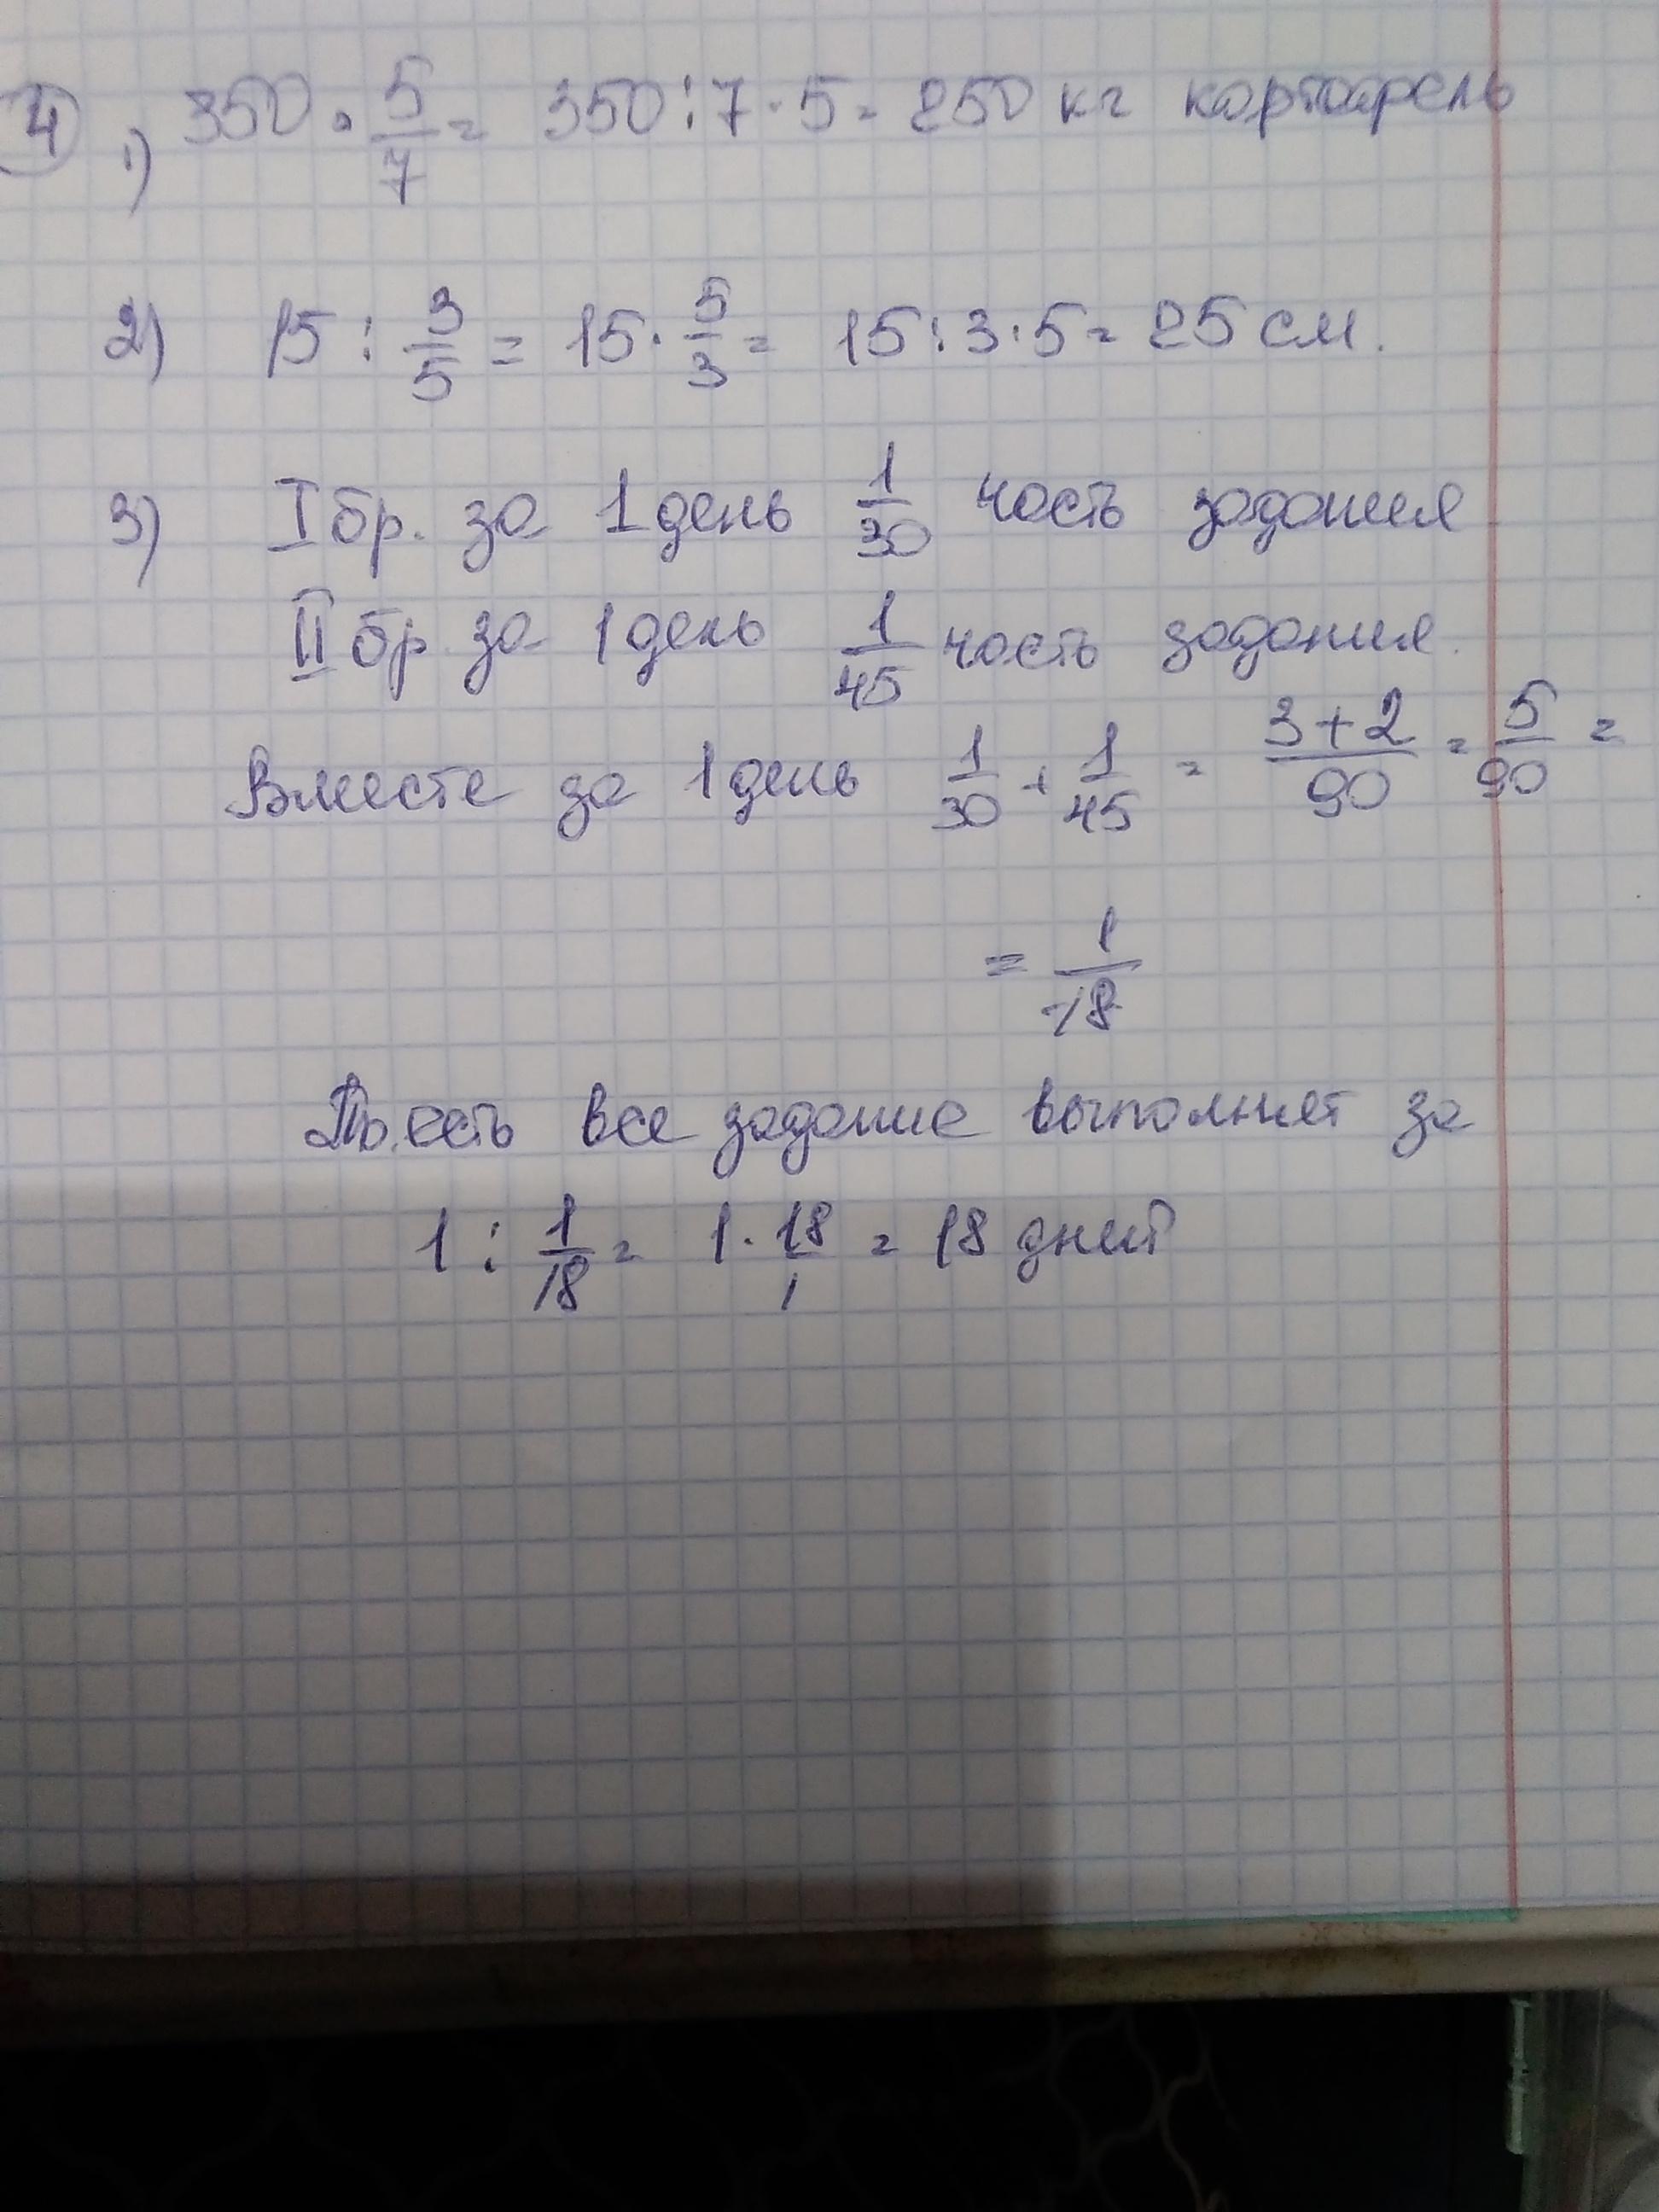 4 1) 350 · 5/7 = 350 : 7 · 5 = 250 кг картофель
2) 15 : 3/5 = 15 · 5/3 = 15 : 3 · 5 = 25 см.
3) I бр. за 1 день 1/30 часть задания
II бр. за 1 день 1/45 часть задания.
Вместе за 1 день 1/30 + 1/45 = 3+2/90 = 5/90 =
= 1/18
То есть все задание выполнят за
1 : 1/18 = 1 · 18/1 = 18 дней